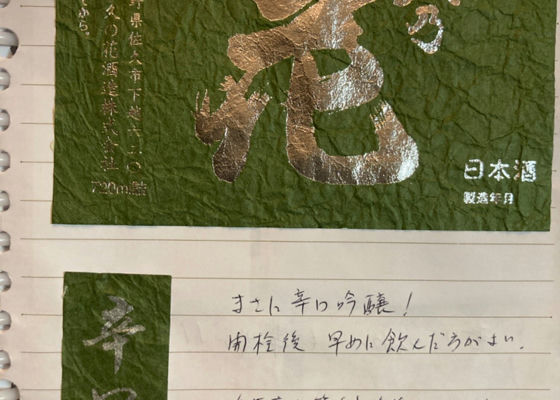 乃
花
野県佐久市下越六二〇
の花酒造株式会社
720ml詰
日本酒
製造年月
辛口
まさに辛口吟醸!
開栓後 早めに飲んだ方がよい。